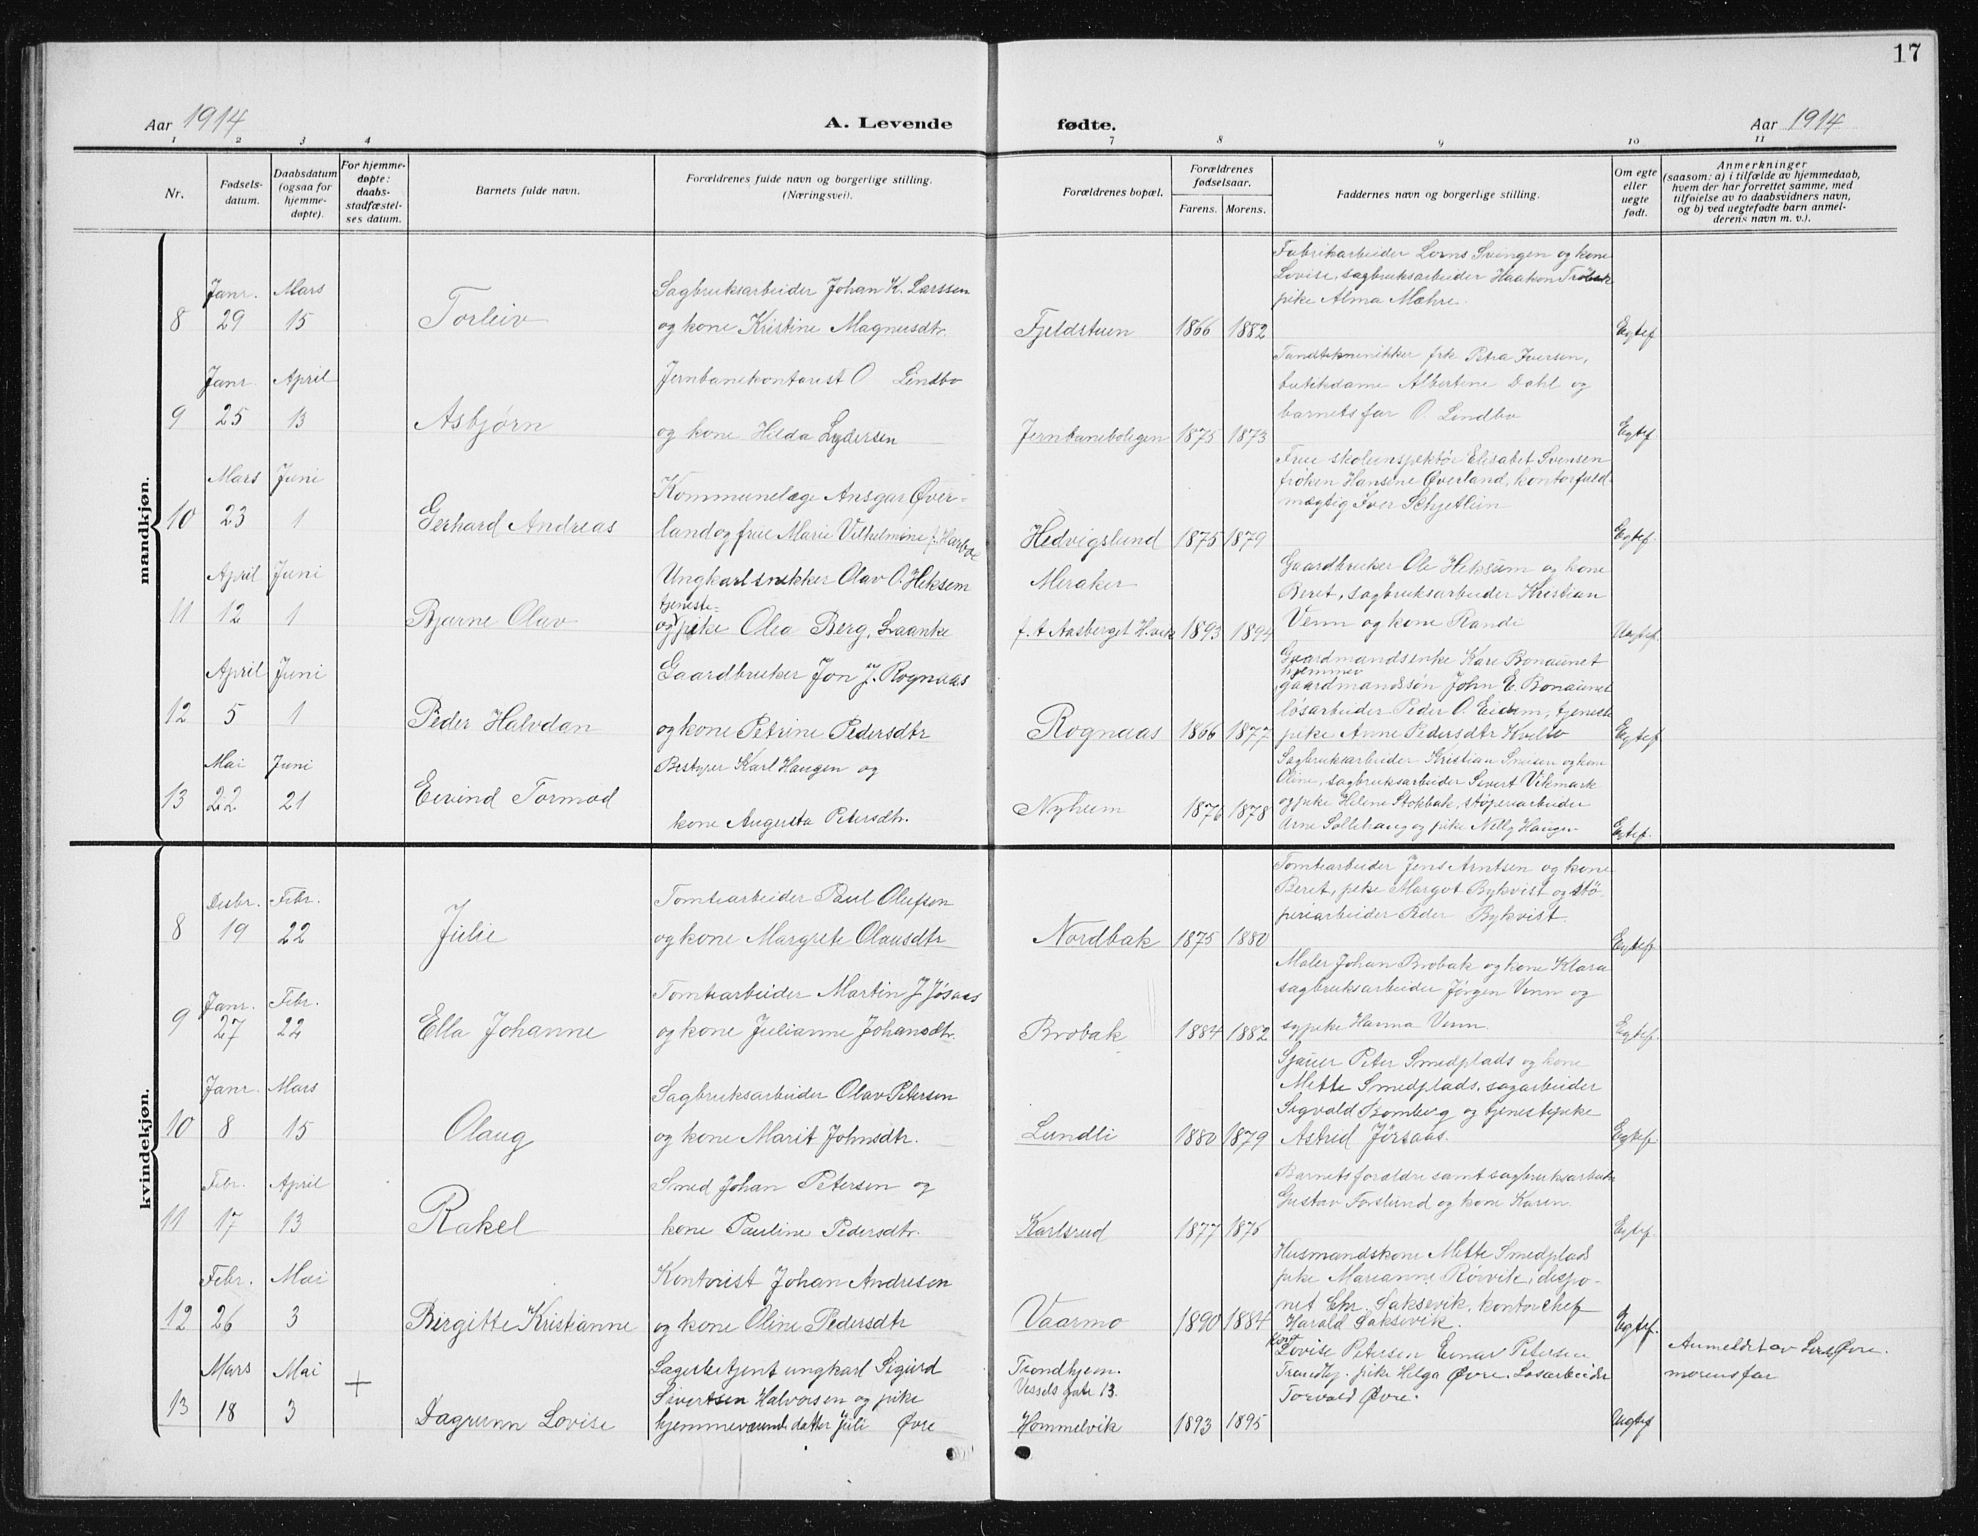 17
Aar 1914 A. Levende fødte. Aar 1914
1 2 3 4 7 8 9 10 11
Nr.
Fødsels-
datum.
Daabsdatum
(ogsaa for
hjemme-
døpte).
For hjemme-
døpte:
daabs-
stadfæstel-
ses datum.
Barnets fulde navn.
Forældrenes fulde navn og borgerlige stilling.
(Næringsvei).
Forældrenes bopæl.
Forældrenes
fødselsaar.
Farens. Morens.
Faddernes navn og borgerlige stilling.
Om egte
eller
uegte
født.
Anmerkninger
(saasom: a) i tilfælde av hjemmedaab,
hvem der har forrettet samme, med
tilføielse av to daabsvidners navn,
og b) ved uegtefødte barn anmel-
derens navn m. v.).
mandkjøn.
8
Janr. 29
Mars 15
Torleiv
Sagbruksarbeider Johan K. Larssen
og kone Kristine Magnusdtr.
Fjeldstuen
1866 1882
Fabrikarbeider Lorns Svingen og kone
Lovise, sagbruksarbeider Haakon
pike Alma Mæhre.
Egtef
9
Janr. 25
April 13
Asbjørn
Jernbanekontorist O. Lindbo
og kone Hilda Lydersen
Jernbaneboligen
1875 1873
Tandtekninikker frk Petra Iversen,
butikdame Albertine Dahl og
barnets far O. Lindbo
Egtef
10
Mars 23
Juni 1
Gerhard Andreas
Kommunelæge Ansgar Øver-
land og frue Marie Vilhelmine f. Harboe
Hedvigslund
1875 1879
Frue skoleinspektør Elisabet Svensen
frøken Hansine Øverland, kontorfuld-
mægtig Iver Schjetlein
Egtef.
11
April 12
Juni 1
Bjarne Olav
Ungkarl snekker Olav O. Heksem
tjeneste-
og pike Olea Berg, Laanke
Meraker
f. t Aasberget H.vik
1893 1894
Gaardbruker Ole Heksem og kone
Beret, sagbruksarbeider Kristian
Venn og kone Randi
Uegtef.
12
April 5
Juni 1
Peder Halvdan
Gaardbruker Jon J. Rognaas
og kone Petrine Pedersdtr
Rognaas
1866 1877
Gaardmandsenke Kari Bonaunet
hjemmev
gaardmandssøn John E. Bonaunet
løsarbeider Peder O. Eidem, tjeneste
pike Anne Pedersdtr
Egtef
13
Mai 22
Juni 21
Eivind Tormod
Bestyrer Karl Haugen og
kone Augusta Petersdtr.
Nyheim
1876 1878
Sagbruksarbeider Kristian og kone
Oline, sagbruksarbeider Sivert Vikmark
og pike Helene Stokbak, støperiarbeider
Arne Solliehaug og pike Nelly Haugen
Egtef.
kvindekjøn.
8
Desbr. 19
Febr. 22
Julie
Tomtearbeider Paul Olufsen
og kone Margrete Olausdtr
Nordbak
1875 1880
Tomtearbeider Jens Arntsen og kone
Beret, pike Margot Bykvist og stø-
periarbeider Peder Bykvist.
Egtef
9
Janr. 27
Febr. 22
Ella Johanne
Tomtearbeider Martin J. Jøsaas
og kone Julianne Johansdtr.
Brobak
1884 1882
Maler Johan Brobak og kone Klara
sagbruksarbeider Jørgen Venn og
sypike Hanna Venn.
Egtef.
10
Janr. 8
Mars 15
Olaug
Sagbruksarbeider Olav Petersen
og kone Marit Johnsdtr.
Lundli
1880 1879
Sjauer Peter Smedplads og kone
Mette Smedplads, sagarbeider
Sigvald Bomberg og tjenestepike
Astrid Jørsaas.
Egtef
11
Febr. 17
April 13
Rakel
Smed Johan Petersen og
kone Pauline Pedersdtr.
Karlsrud
1877 1875
Barnets forældre samt sagbruksarbeider
Gustav Forslund og kone Karen.
Egtef.
12
Febr. 26
Mai 3
Birgitte Kristianne
Kontorist Johan Andresen
og kone Oline Pedersdtr
Vaarmo
1890 1884
Husmandskone Mette Smedplads
pike Marianne Rørvik, dispo-
net Chr. Saksevik, kontorchef
Harald Saksevik.
Egtef.
13
Mars 18
Mai 3
+
Dagrunn Lovise
Lagerbetjent ungkarl Sigurd
Sivertsen Halvorsen og pike
hjemmeværende datter Juli Øvre
Trondhjem.
Vessels gate 13.
Hommelvik
1893 1895
Lovise Petersen Einar Petersen
Trondhj. pike Helga Øvre. Løsarbeider
Torvald Øvre.
Uegtef
Anmeldt av Lars Øvre.
morens far